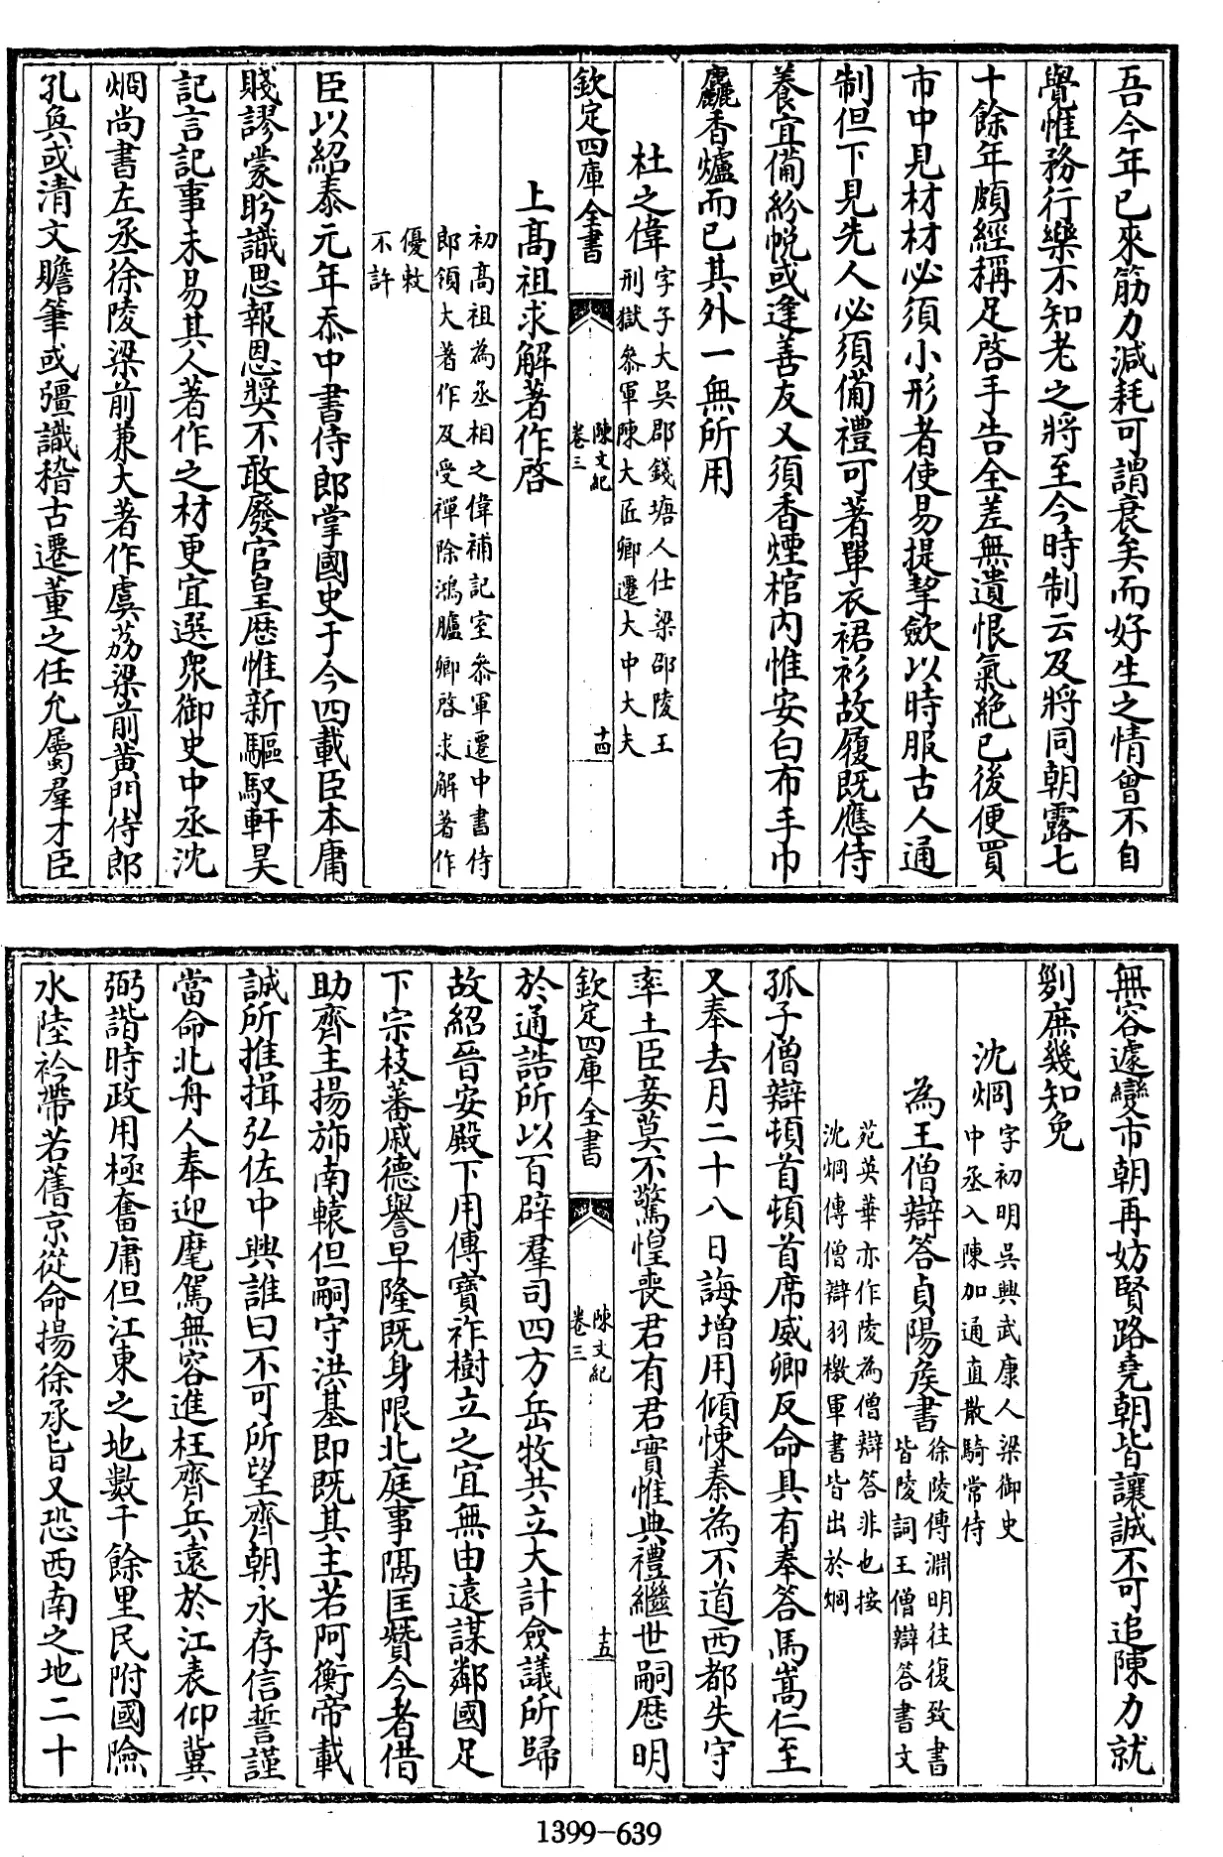 吾今年已來筋力減耗可謂衰矣而好生之情曾不自
覺惟務行樂不知老之將至今時制云及將同朝露七
十餘年頗經稱足啓手告全差無遺恨氣絶已後便買
市中見材材必須小形者使易提挈斂以時服古人通
制但下見先人必須備禮可著單衣裙衫故履既應侍
養宜備紛帨或逢善友又須香煙棺内惟安白布手巾
麤香爐而已其外一無所用
杜之偉字子大吳郡錢塘人仕梁邵陵王
刑獄叅軍陳大匠卿遷大中大夫
欽定四庫全書
陳文紀
卷三
十四
上高祖求解著作啓
初高祖為丞相之偉補記室叅軍遷中書侍
郎領大著作及受禪除鴻臚卿啓求解著作
優敕
不許
臣以紹泰元年忝中書侍郎掌國史于今四載臣本庸
賤謬蒙盼識思報恩奬不敢廢官皇歴惟新驅馭軒昊
記言記事未易其人著作之材更宜選衆御史中丞沈
烱尚書左丞徐陵梁前兼大著作虞荔梁前黄門侍郎
孔奐或清文贍筆或彊識稽古遷董之任允屬羣才臣
無容遽變市朝再妨賢路堯朝皆讓誠不可追陳力就
列庶幾知免
沈烱字初明吳興武康人梁御史
中丞入陳加通直散騎常侍
為王僧辯答貞陽侯書徐陵傳淵明往復致書
皆陵詞王僧辯答書文
苑英華亦作陵為僧辯答非也按
沈烱傳僧辯羽檄軍書皆出於烱
孤子僧辯頓首頓首席威卿反命具有奉答馬嵩仁至
又奉去月二十八日誨增用傾悚秦為不道西都失守
率土臣妾莫不驚惶喪君有君實惟典禮繼世嗣歴明
欽定四庫全書
陳文紀
卷三
十五
於通誥所以百辟羣司四方岳牧共立大計僉議所歸
故紹晉安殿下用傳寶祚樹立之宜無由遠謀鄰國足
下宗枝蕃戚德譽早隆既身限北庭事隔匡贊今者借
助齊主揚斾南轅但嗣守洪基即既其主若阿衡帝載
誠所推揖弘佐中興誰曰不可所望齊朝永存信誓謹
當命北舟人奉迎麾駕無容進枉齊兵遠於江表仰冀
弼諧時政用極奮庸但江東之地數千餘里民附國險
水陸衿帶若舊京從命揚徐承旨又恐西南之地二十
1399-639